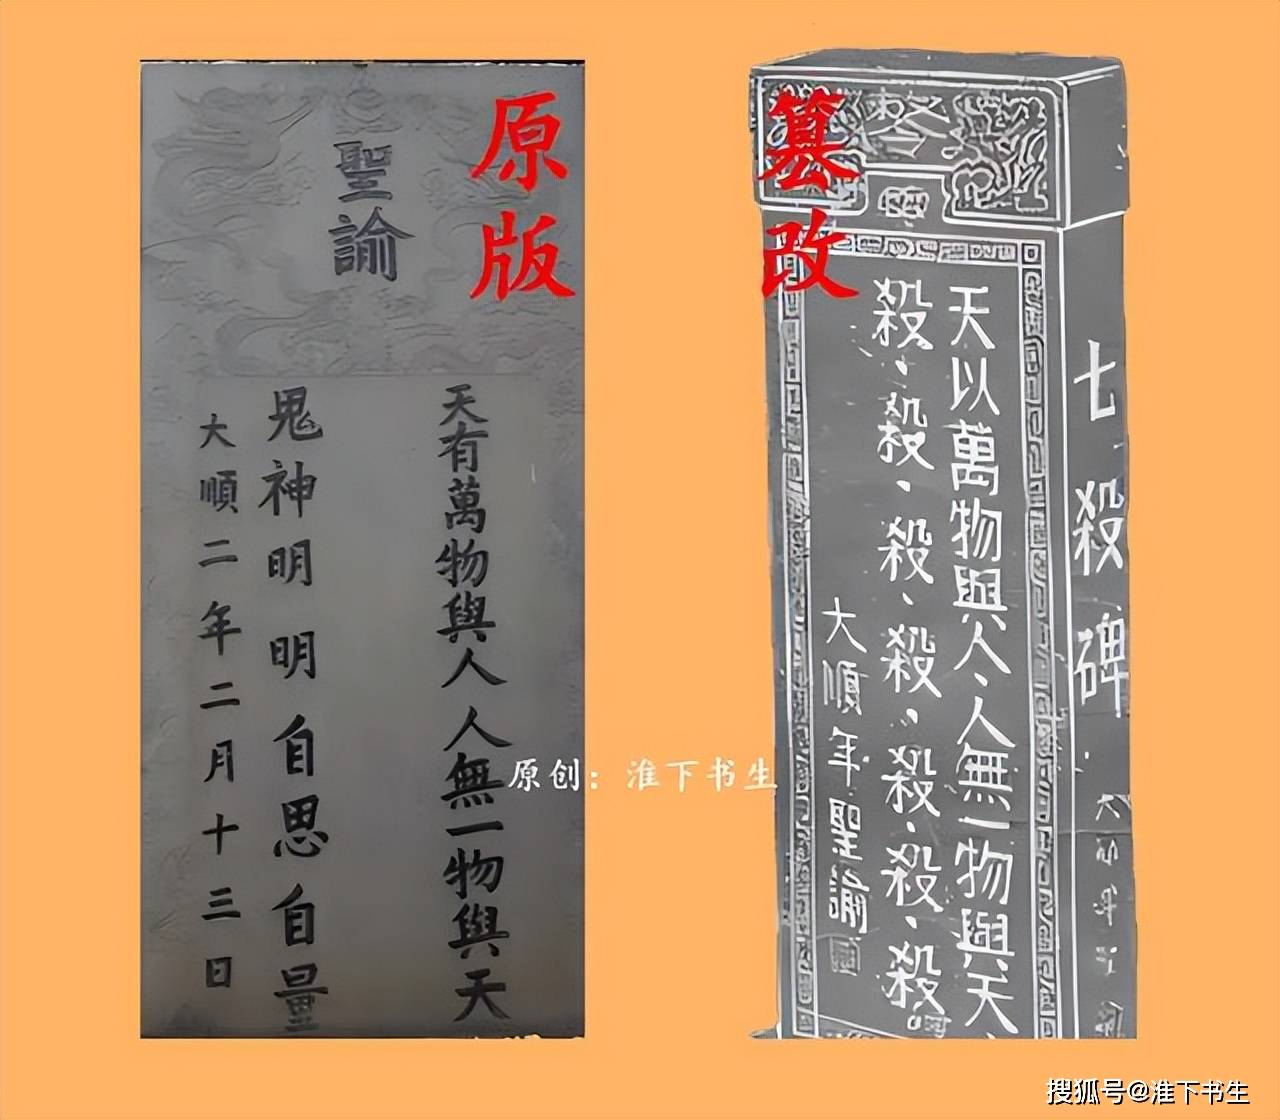 原版
聖諭
天有萬物與人人無一物與天
鬼神明明自思自量
大順二年二月十三日
篡改
天以萬物與人、人無一物與天、
殺、殺、殺、殺、殺、殺、殺
大順年聖諭
七殺碑
原创：淮下书生
搜狐号@淮下书生